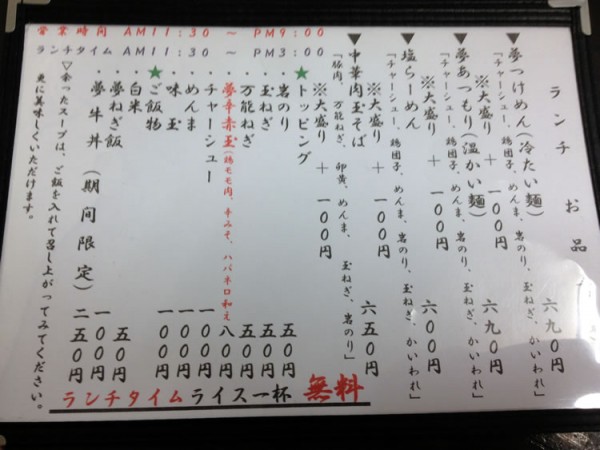 ランチ お品
▼夢つけめん(冷たい麺) 六九〇円
「チャーシュー、鶏団子、めんま、岩のり、玉ねぎ、かいわれ」
※大盛り + 一〇〇円
▼夢あつもり(温かい麺) 六九〇円
「チャーシュー、鶏団子、めんま、岩のり、玉ねぎ、かいわれ」
※大盛り + 一〇〇円
▼塩らーめん 六〇〇円
「チャーシュー、鶏団子、めんま、岩のり、玉ねぎ、かいわれ」
※大盛り + 一〇〇円
▼中華肉玉そば 六五〇円
「豚肉、万能ねぎ、卵黄、めんま、玉ねぎ、岩のり」
※大盛り + 一〇〇円
★トッピング
・岩のり 五〇円
・玉ねぎ 五〇円
・万能ねぎ 五〇円
・夢辛赤玉(鶏モモ肉、辛みそ、ハバネロ和え 八〇円
・チャーシュー 一〇〇円
・めんま 一〇〇円
・味玉 一〇〇円
★ご飯物
・白米
・夢ねぎ飯 五〇円
・夢牛丼(期間限定) 一〇〇円
二五〇円
▽余ったスープは、ご飯を入れて召し上がってみてください。
更に美味しくいただけます。
営業時間 AM11:30 ~ PM9:00
ランチタイム AM11:30 ~ PM3:00
ランチタイムライス一杯 無料